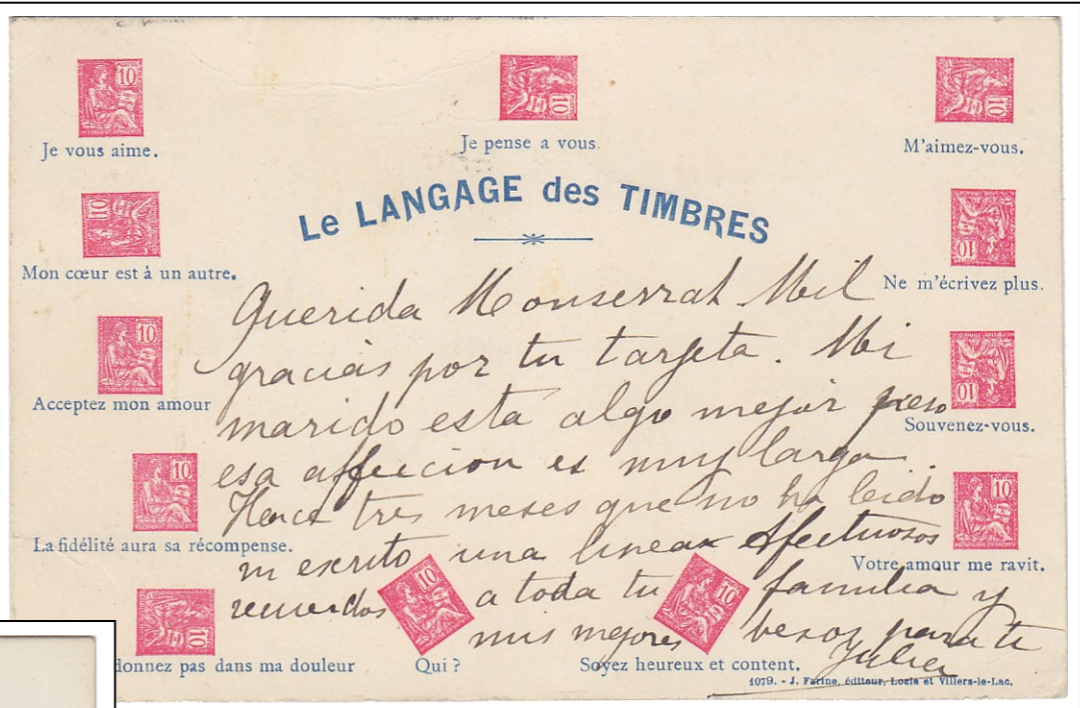 Je vous aime.
Je pense a vous.
M'aimez-vous.
Le LANGAGE des TIMBRES
Mon cœur est à un autre.
Ne m'écrivez plus.
Acceptez mon amour
Souvenez-vous.
La fidélité aura sa récompense.
Votre amour me ravit.
donnez pas dans ma douleur
Qui ?
Soyez heureux et content.
1079. - J. Farine, éditeur, Locle et Villers-le-Lac.
Querida Monserrat Mil
gracias por tu targeta. Mi
marido esta algo mejor pero
esa affeccion es muy larga
Hace tres meses que no ha leido
ni escrito una linea Afectuosos
recuerdos a toda tu familia y
mis mejores besos para ti
Julia
10
10
10
10
10
10
10
10
10
10
10
10
10